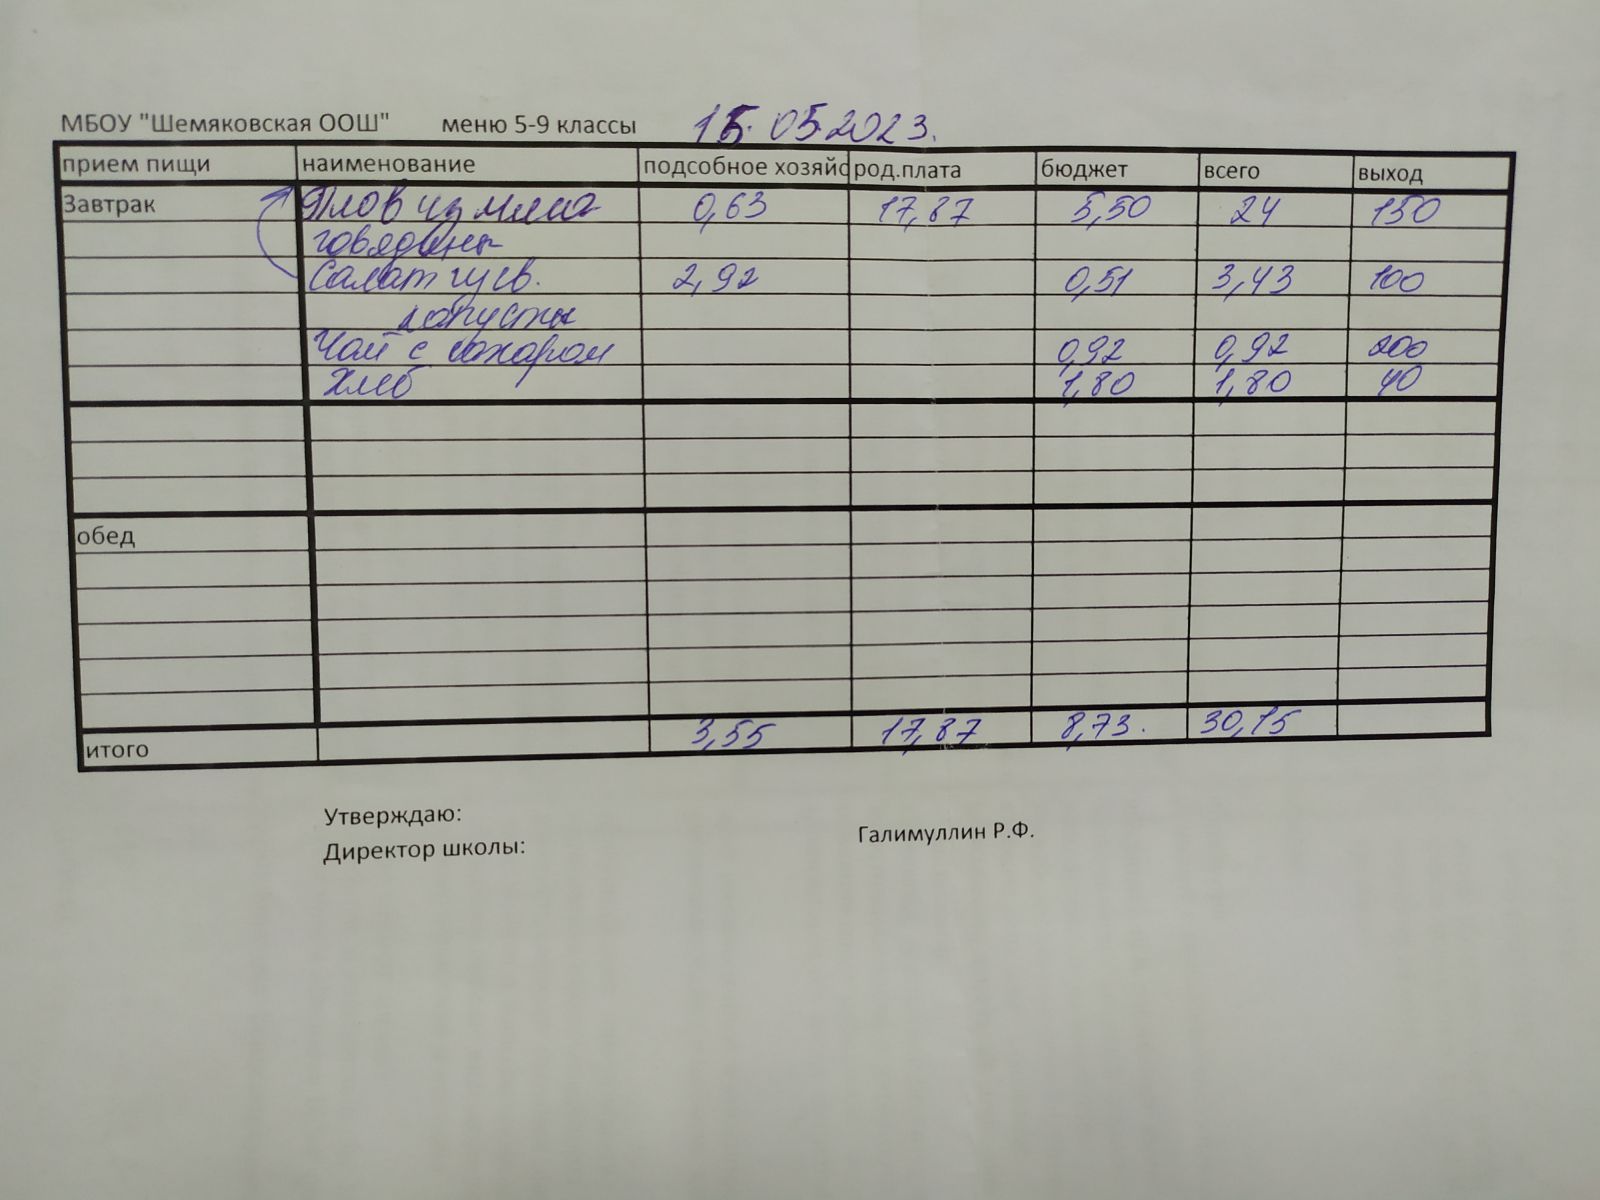 МБОУ "Шемяковская ООШ" меню 5-9 классы 15.05.2023.
прием пищи наименование подсобное хозяйс род.плата бюджет всего выход
Завтрак Плов из мяса 0,63 17,87 5,50 24 150
говядины
Салат из св. 2,92 0,51 3,43 100
капусты
Чай с сахаром 0,92 0,92 200
Хлеб 1,80 1,80 40
обед
итого 3,55 17,87 8,73. 30,15
Утверждаю:
Директор школы: Галимуллин Р.Ф.